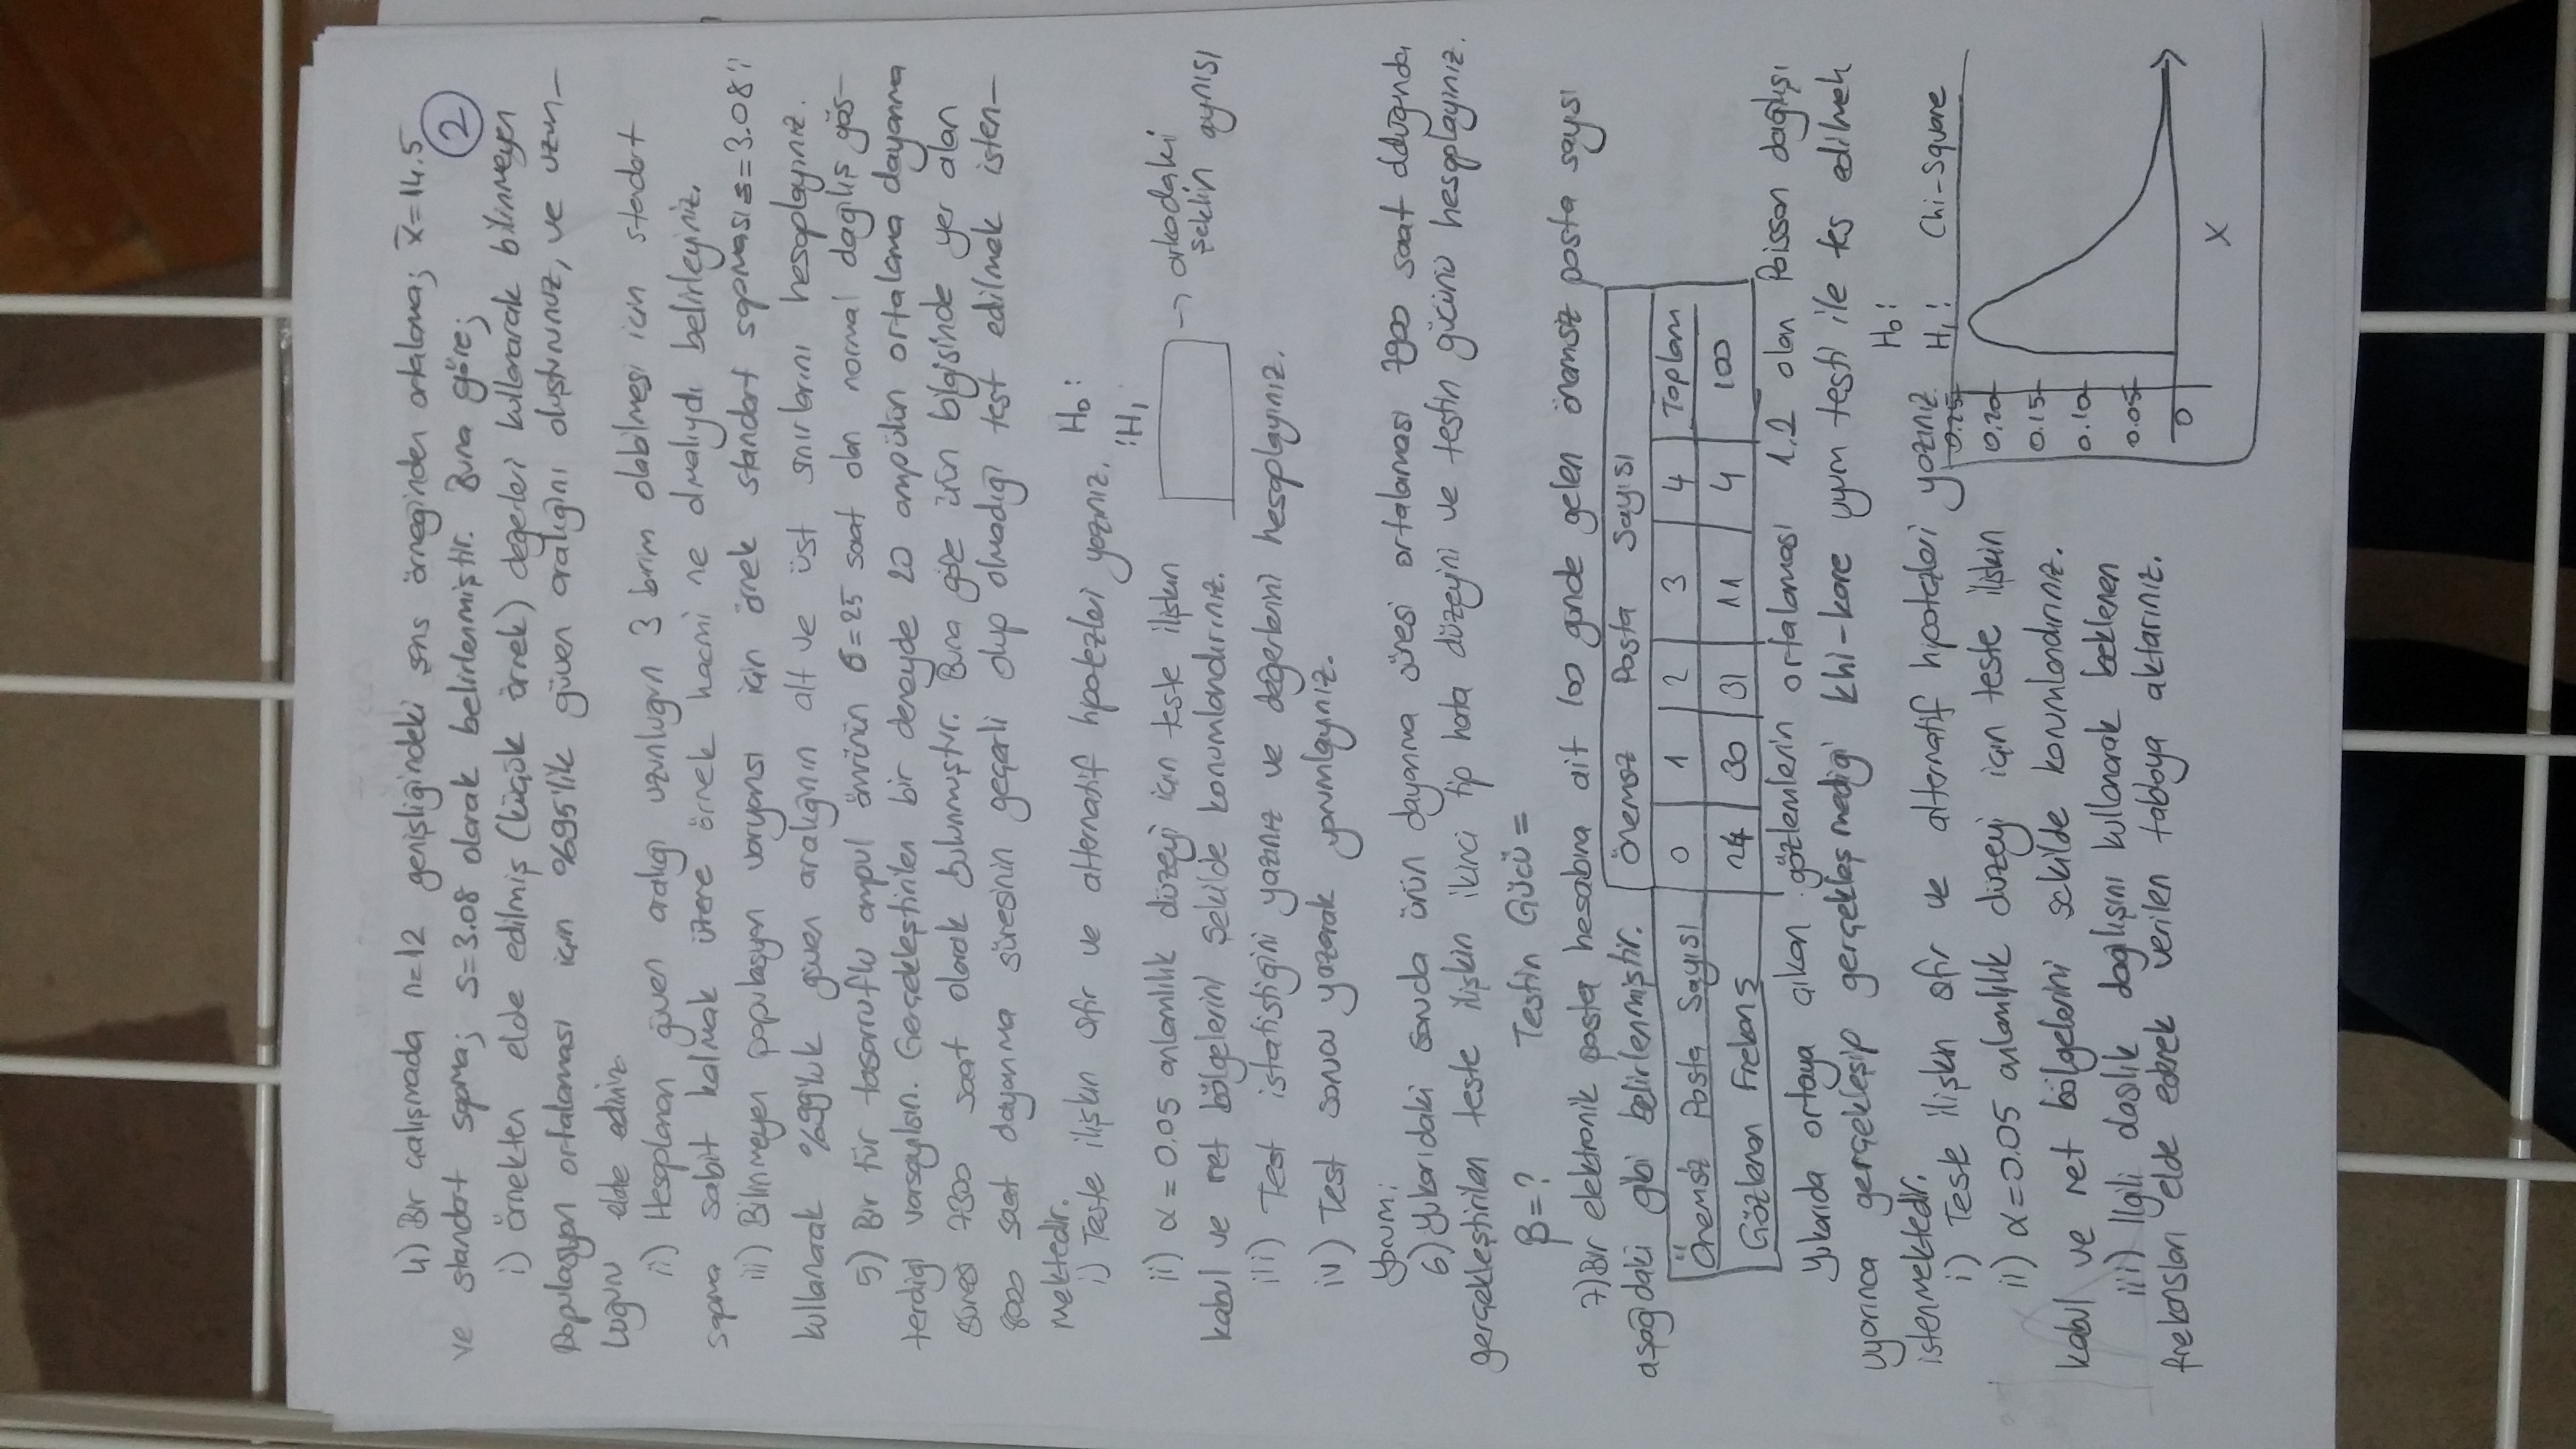 4) Bir çalışmada n=12 genişliğindeki şans örneğinden ortalama; x̄=14.5
ve standart sapma; s=3.08 olarak belirlenmiştir. Buna göre;
2
i) örnekten elde edilmiş (küçük örnek) değerleri kullanarak bilinmeyen
Populasyon ortalaması için %95'lik güven aralığını oluşturunuz, ve uzun-
luğunu elde ediniz.
ii) Hesaplanan güven aralığı uzunluğun 3 birim olabilmesi için standart
sapma sabit kalmak üzere örnek hacmi ne olmalıydı belirleyiniz.
iii) Bilinmeyen populasyon varyansı için örnek standart sapması s=3.08'i
kullanarak %99'luk güven aralığının alt ve üst sınırlarını hesaplayınız.
5) Bir tür tasarruflu ampul ömrünün σ=25 saat olan normal dağılış gös-
terdiği varsayılsın. Gerçekleştirilen bir deneyde 20 ampülün ortalama dayanma
süresi 7300 saat olarak bulunmuştur. Buna göre ürün bilgisinde yer alan
8000 saat dayanma süresinin geçerli olup olmadığı test edilmek isten-
mektedir.
i) Teste ilişkin sıfır ve alternatif hipotezleri yazınız. H₀:
:H₁
ii) α=0.05 anlamlılık düzeyi için teste ilişkin
kabul ve ret bölgelerini şekilde konumlandırınız.
→ arkadaki
şeklin aynısı
iii) Test istatistiğini yazınız ve değerlerini hesaplayınız.
iv) Test sonucu yazarak yorumlayınız.
Yorum;
6) Yukarıdaki soruda ürün dayanma süresi ortalaması 7900 saat olduğunda
gerçekleştirilen teste ilişkin ikinci tip hata düzeyini ve testin gücünü hesaplayınız.
β=? Testin Gücü=
7) Bir elektronik posta hesabına ait 100 günde gelen önemsiz posta sayısı
aşağıdaki gibi belirlenmiştir.
Önemsz Posta Sayısı
Önemsiz Posta Sayısı 0 1 2 3 4 Toplam
Gözlenen Frekans 24 30 31 11 4 100
Yukarıda ortaya çıkan gözlemlerin ortalaması 1,2 olan Poisson dağılışı
uyarınca gerçekleşip gerçekleşmediği khi-kare uyum testi ile tes edilmek
istenmektedir.
H₀:
i) Teste ilişkin sıfır ve alternatif hipotezleri yazınız. H₁:
ii) α=0.05 anlamlılık düzeyi için teste ilişkin
kabul ve ret bölgelerini şekilde konumlandırınız.
iii) Ilgili olasılık dağılışını kullanarak beklenen
frekansları elde ederek verilen tabloya aktarınız.
Chi-Square
0.25
0.20
0.15
0.10
0.05
0
X